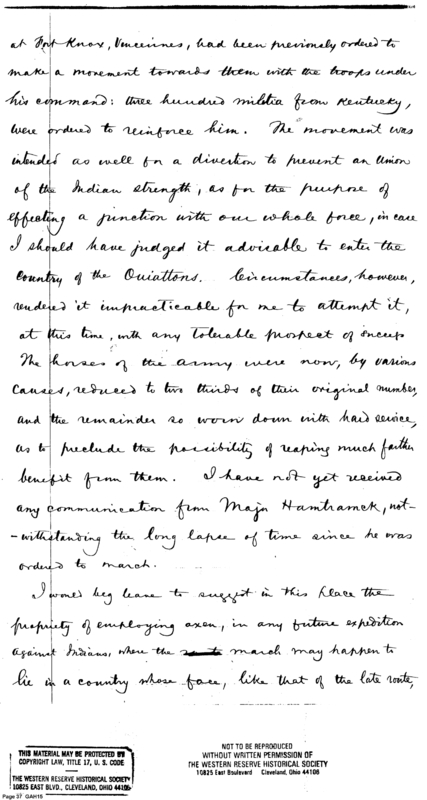 at Fort Knox, Vincennes, had been previously ordered to
make a movement towards them with the troops under
his command: three hundred militia from Kentucky,
were ordered to reinforce him. The movement was
intended as well for a diversion to prevent an Union
of the Indian strength, as for the purpose of
effecting a junction with our whole force, in case
I should have judged it advisable to enter the
Country of the Ouiattons. Circumstances, however,
rendered it impracticable for me to attempt it,
at this time, with any tolerable prospect of success
The horses of the army were now, by various
Causes, reduced to two thirds of their original number,
and the remainder so worn down with hard service,
as to preclude the possibility of reaping much farther
benefit from them. I have not yet received
any communication from Major Hamtramck, not-
-withstanding the long lapse of time since he was
ordered to march.
I would beg leave to suggest in this place the
propriety of employing axen, in any future expedition
against Indians, where the march may happen to
lie in a country whose face, like that of the late route,
THIS MATERIAL MAY BE PROTECTED BY
COPYRIGHT LAW, TITLE 17, U. S. CODE
THE WESTERN RESERVE HISTORICAL SOCIETY
10825 EAST BLVD., CLEVELAND, OHIO 44106
NOT TO BE REPRODUCED
WITHOUT WRITTEN PERMISSION OF
THE WESTERN RESERVE HISTORICAL SOCIETY
10825 East Boulevard Cleveland, Ohio 44106
Page 37 GAH15